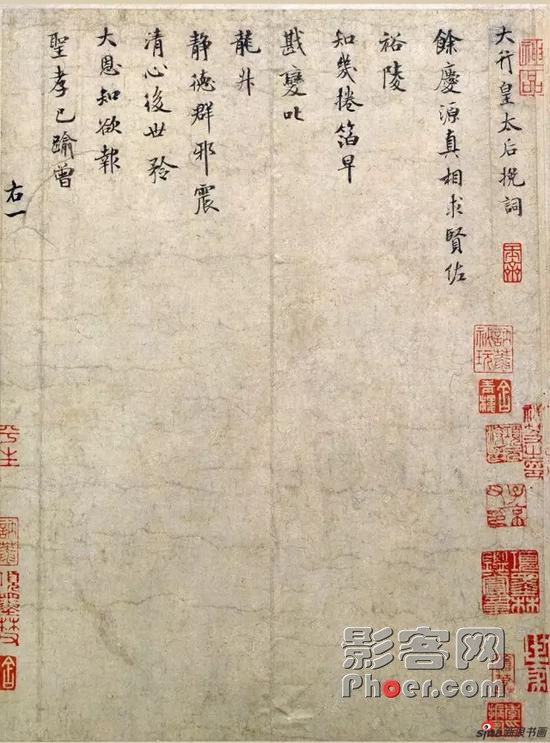 大行皇太后挽詞
餘慶源真相求賢佐
裕陵
知幾捲箔早
戡變叱
龍升
静德群邪震
清心後世矜
大恩知欲報
聖孝已踰曾
右一
神品
影客网
Phoer.com
sina新浪书画